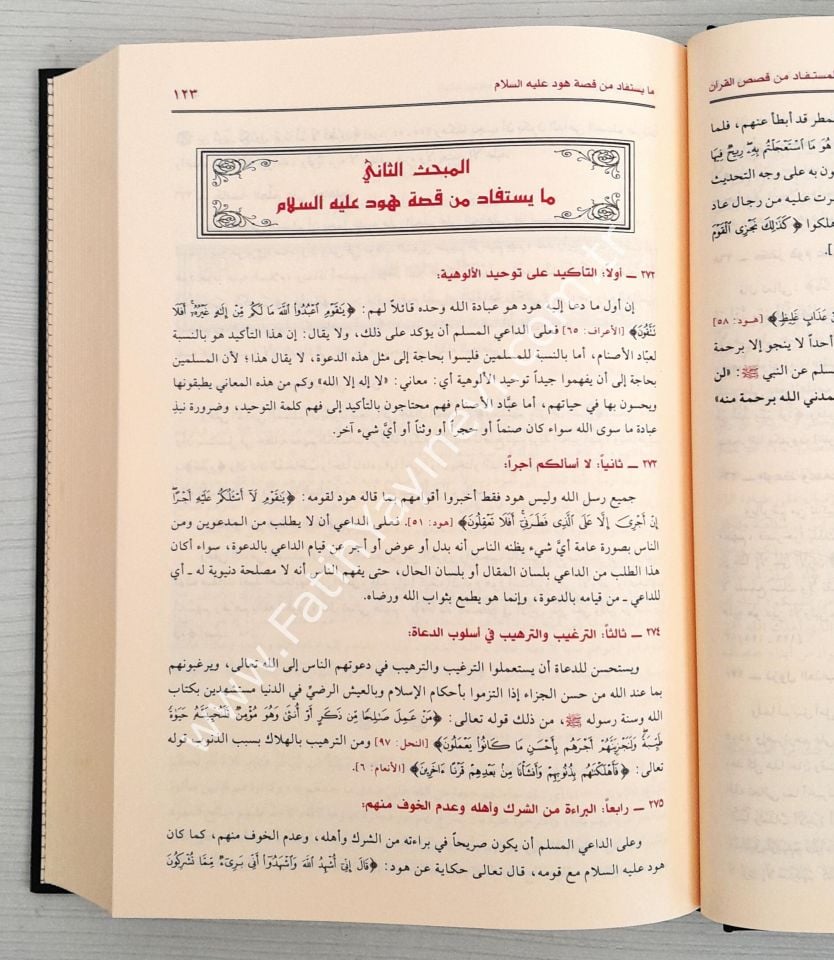 ما يستفاد من قصة هود عليه السلام
١٢٣
المبحث الثاني
ما يستفاد من قصة هود عليه السلام
٢٧٢ ـ أولا: التأكيد على توحيد الألوهية:
إن أول ما دعا إليه هود هو عبادة الله وحده قائلاً لهم: ﴿يَٰقَوْمِ ٱعْبُدُوا۟ ٱللَّهَ مَا لَكُم مِّنْ إِلَٰهٍ غَيْرُهُۥٓ ۚ أَفَلَا
تَتَّقُونَ﴾ [الأعراف: ٦٥] فعلى الداعي المسلم أن يؤكد على ذلك، ولا يقال: إن هذا التأكيد هو بالنسبة
لعبّاد الأصنام، أما بالنسبة للمسلمين فليسوا بحاجة إلى مثل هذه الدعوة، لا يقال هذا؛ لأن المسلمين
بحاجة إلى أن يفهموا جيداً توحيد الألوهية أي: معاني: «لا إله إلا الله» وكم من هذه المعاني يطبقونها
ويحسون بها في حياتهم، أما عبَّاد الأصنام فهم محتاجون بالتأكيد إلى فهم كلمة التوحيد، وضرورة نبذ
عبادة ما سوى الله سواء كان صنماً أو حجراً أو وثناً أو أي شيء آخر.
٢٧٣ ـ ثانياً: لا أسألكم أجراً:
جميع رسل الله وليس هود فقط أخبروا أقوامهم بما قاله هود لقومه: ﴿يَٰقَوْمِ لَآ أَسْـَٔلُكُمْ عَلَيْهِ أَجْرًا ۖ
إِنْ أَجْرِىَ إِلَّا عَلَى ٱلَّذِى فَطَرَنِىٓ ۚ أَفَلَا تَعْقِلُونَ﴾ [هود: ٥١]. فعلى الداعي أن لا يطلب من المدعوين ومن
الناس بصورة عامة أيَّ شيء يظنه الناس أنه بدل أو عوض أو أجر عن قيام الداعي بالدعوة، سواء أكان
هذا الطلب من الداعي بلسان المقال أو بلسان الحال، حتى يفهم الناس أنه لا مصلحة دنيوية له ـ أي
للداعي ـ من قيامه بالدعوة، وإنما هو يطمع بثواب الله ورضاه.
٢٧٤ ـ ثالثاً: الترغيب والترهيب في أسلوب الدعاة:
ويستحسن للدعاة أن يستعملوا الترغيب والترهيب في دعوتهم الناس إلى الله تعالى، ويرغبونهم
بما عند الله من حسن الجزاء إذا التزموا بأحكام الإسلام وبالعيش الرضيِّ في الدنيا مستشهدين بكتاب
الله وسنة رسوله ﷺ، من ذلك قوله تعالى: ﴿مَنْ عَمِلَ صَٰلِحًا مِّن ذَكَرٍ أَوْ أُنثَىٰ وَهُوَ مُؤْمِنٌ فَلَنُحْيِيَنَّهُۥ حَيَوٰةً
طَيِّبَةً ۖ وَلَنَجْزِيَنَّهُمْ أَجْرَهُم بِأَحْسَنِ مَا كَانُوا۟ يَعْمَلُونَ﴾ [النحل: ٩٧] ومن الترهيب بالهلاك بسبب الذنوب قوله
تعالى: ﴿فَأَهْلَكْنَٰهُم بِذُنُوبِهِمْ وَأَنشَأْنَا مِنۢ بَعْدِهِمْ قَرْنًا ءَاخَرِينَ﴾ [الأنعام: ٦].
٢٧٥ ـ رابعاً: البراءة من الشرك وأهله وعدم الخوف منهم:
وعلى الداعي المسلم أن يكون صريحاً في براءته من الشرك وأهله، وعدم الخوف منهم، كما كان
هود عليه السلام مع قومه، قال تعالى حكاية عن هود: ﴿قَالَ إِنِّىٓ أُشْهِدُ ٱللَّهَ وَٱشْهَدُوٓا۟ أَنِّى بَرِىٓءٌ مِّمَّا تُشْرِكُونَ
المستفاد من قصص القرآن
مطر قد أبطأ عنهم، فلما
هُوَ مَا ٱسْتَعْجَلْتُم بِهِۦ ۖ رِيحٌ فِيهَا
ون به على وجه التحديث
رت عليه من رجال عاد
هلكوا ﴿كَذَٰلِكَ نَجْزِى ٱلْقَوْمَ
].
نْ عَذَابٍ غَلِيظٍ﴾ [هود: ٥٨]
أحداً لا ينجو إلا برحمة
سلم عن النبي ﷺ: «لن
مدني الله برحمة منه»
www.FatihYayinevi.com.tr